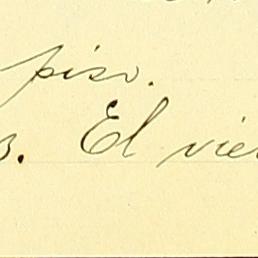 piso.
3. El vie